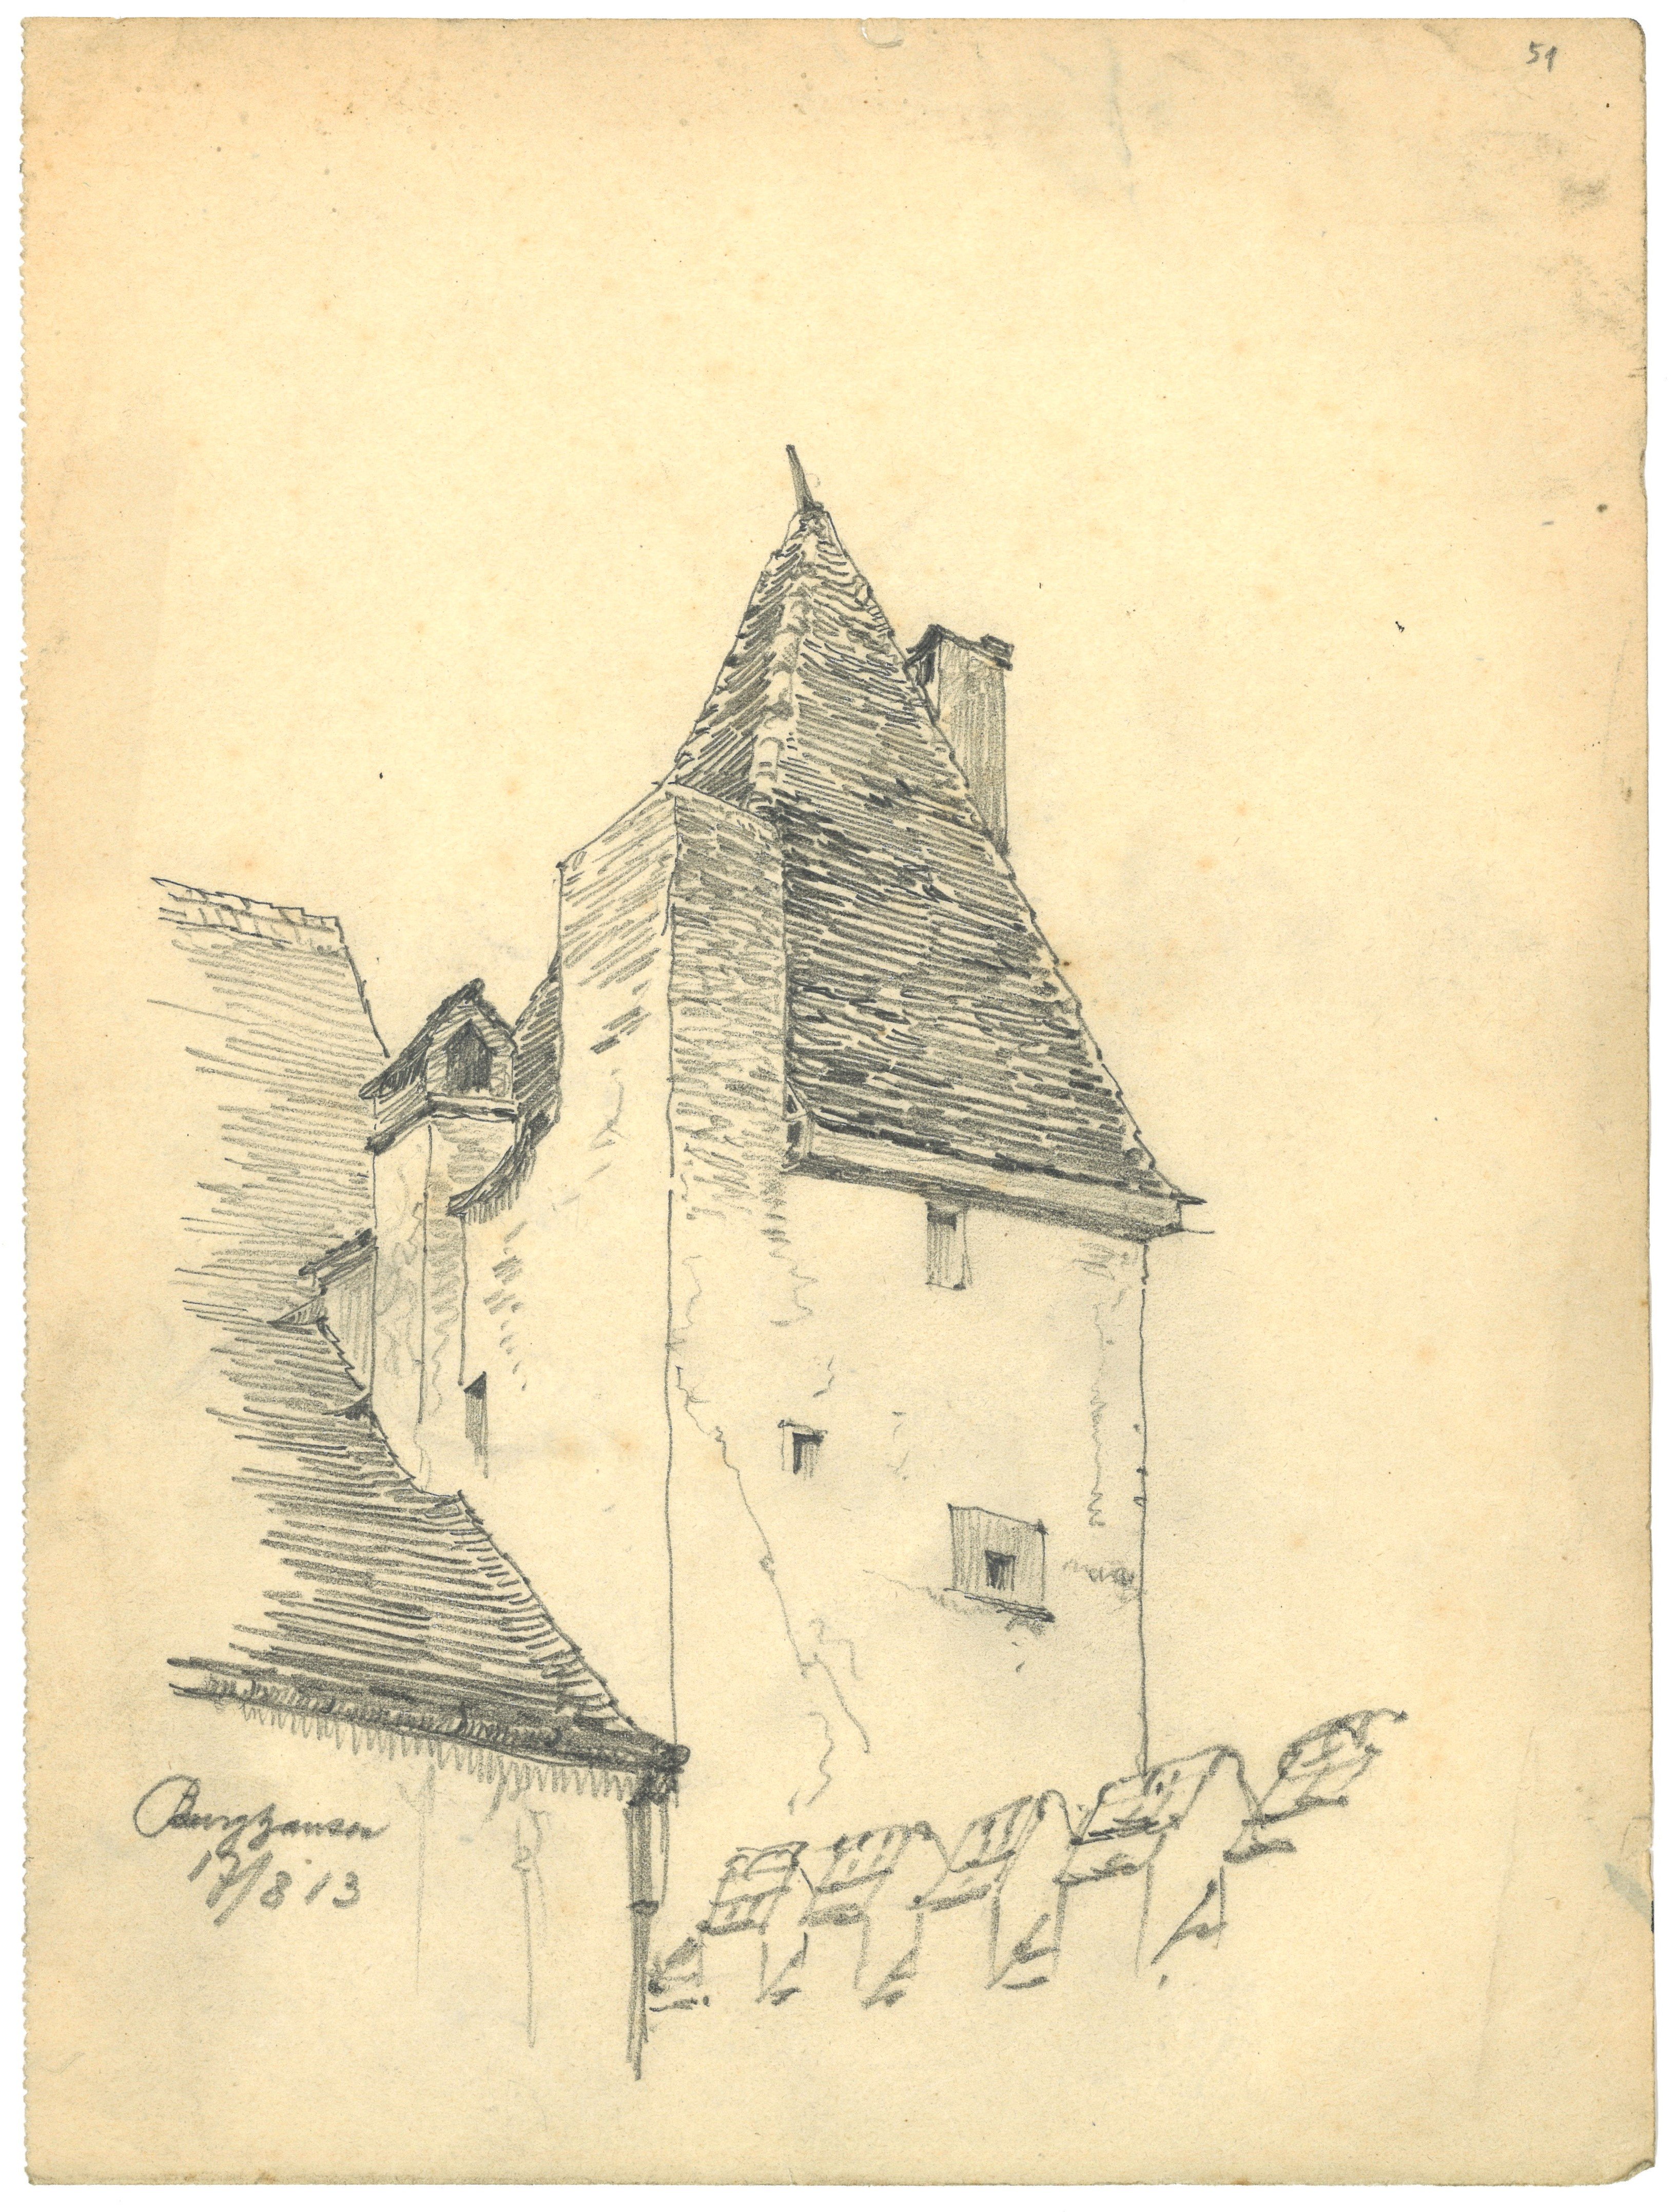 51
Burghausen
17/8 13